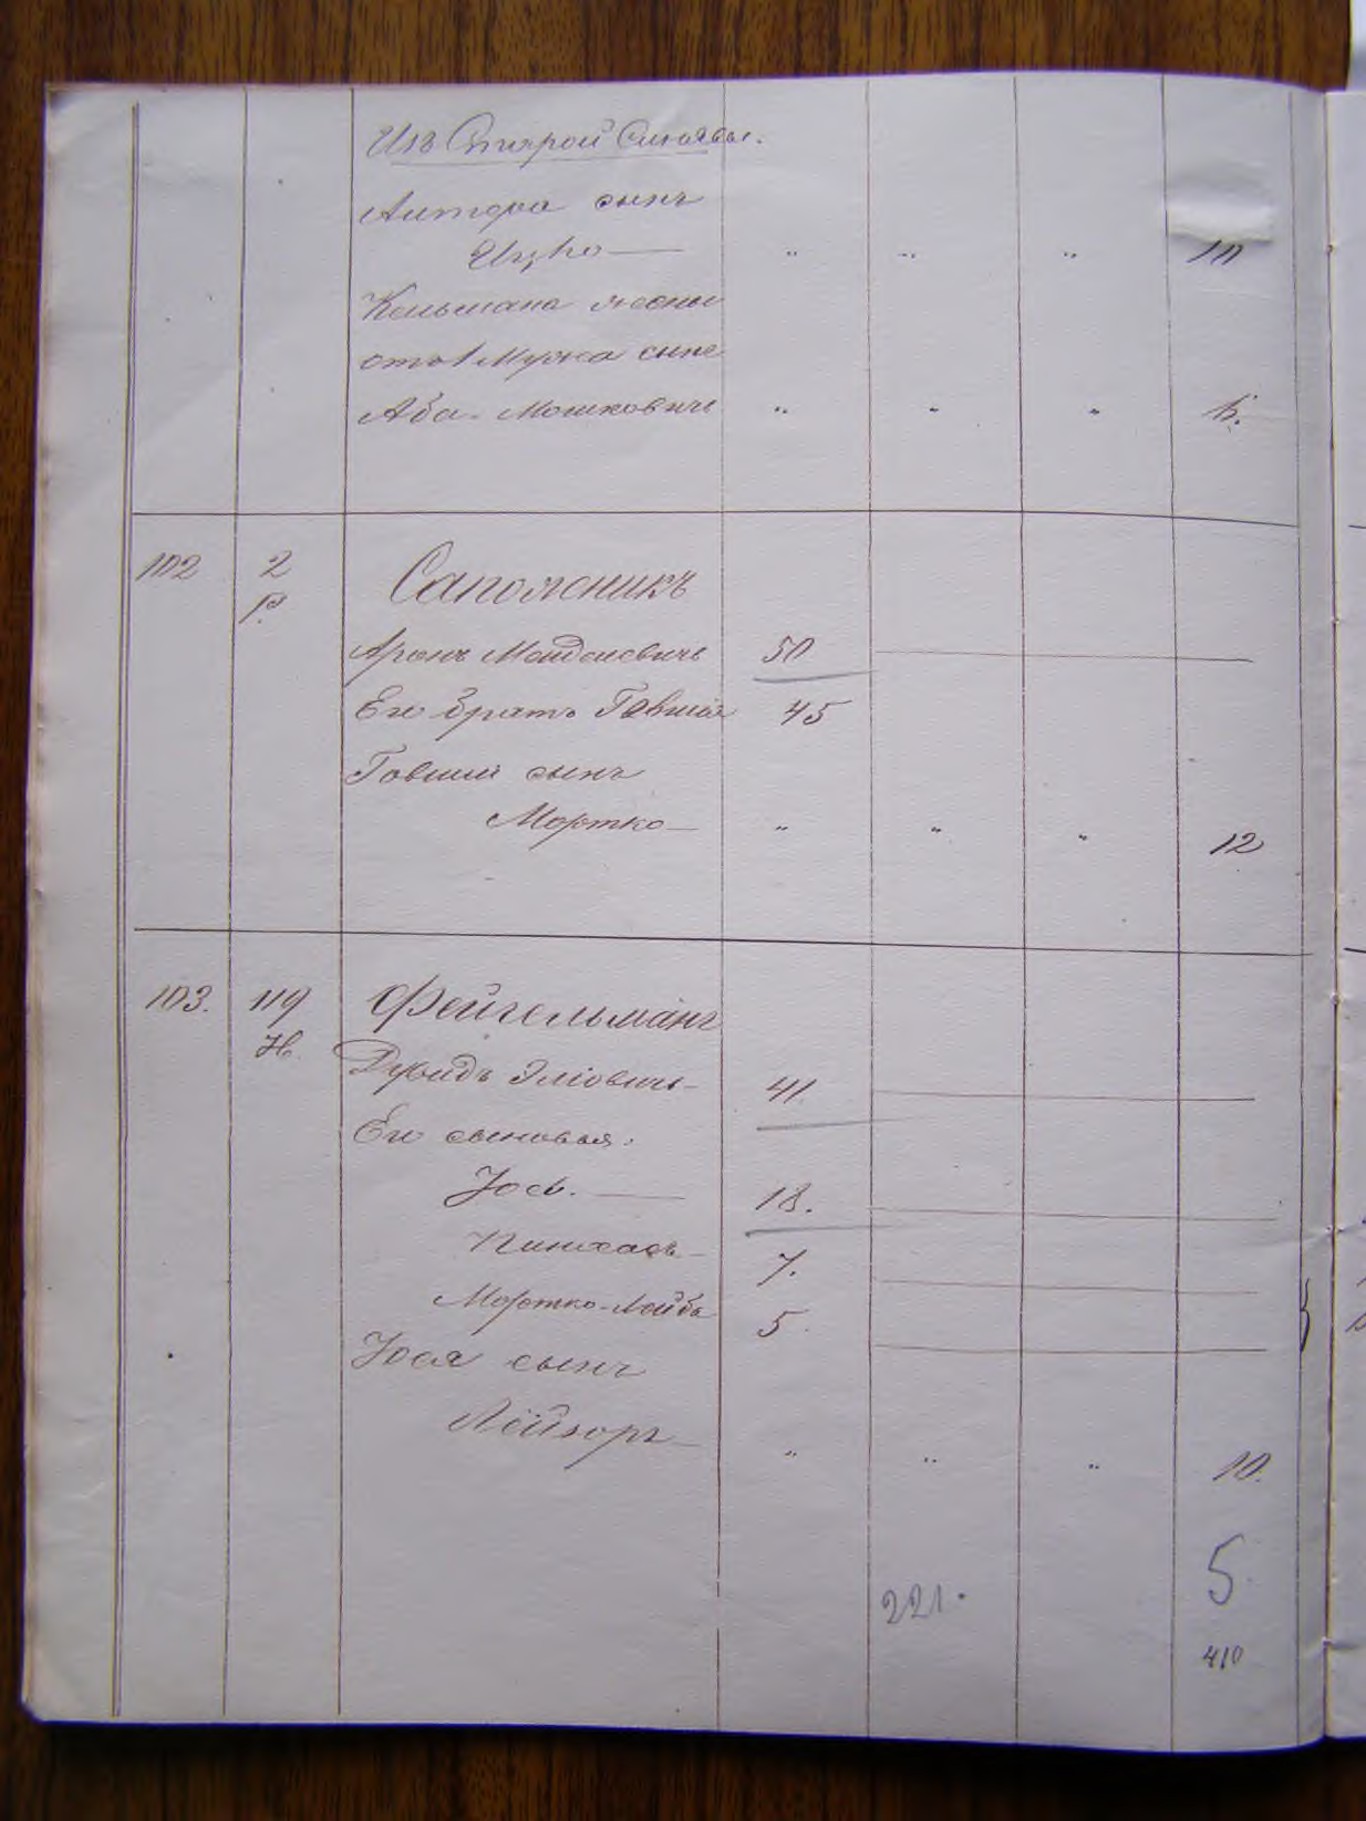 Изъ Старой Синявы.
Антера сынъ
Ицко — " " " 10
Кельмана жены
отъ 1 мужа сынъ
Аба-Мошковичъ " " " 15.
102 2 Сапожникъ
р.
Аронъ Менделевичъ 50
Его братъ Говшія 45
Говшіи сынъ
Мортко — " " " 12
103. 119 Фейгельманъ
Н.
Дувидъ Эліовичъ 41
Его сыновья:
Іось. — 18.
Пинхасъ 7.
Мортко-Лейба 5.
Іося сынъ
Лейзоръ " " " 10.
5.
221.
410